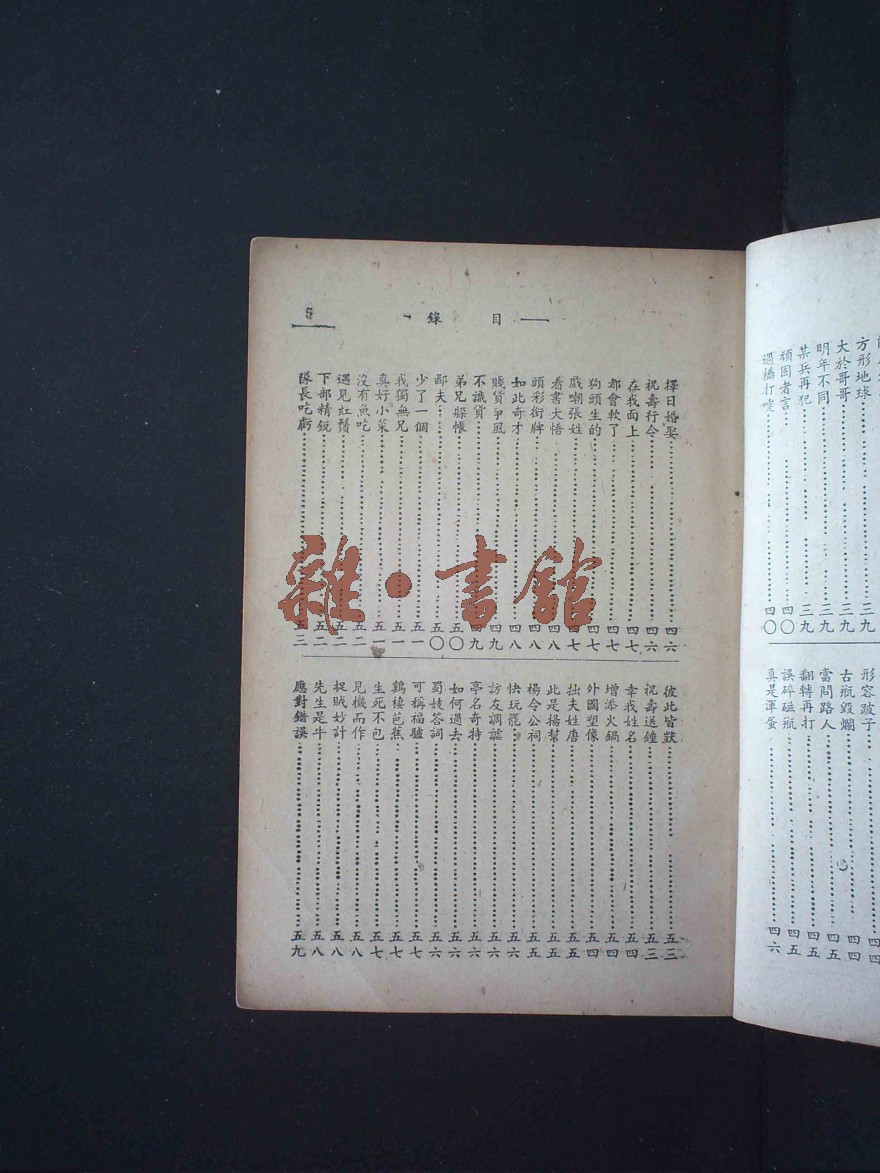 形容跛子……四四
古瓶毀爛……四四
當問路人……四五
翻轉再打……四五
誤碎磁瓶……四五
真是渾蛋……四六
方形地球……三九
大於哥哥……三九
明年不同……三九
某兵再犯……三九
頑固者言……四〇
過橋打咳……四〇
目錄
5
擇日婚娶……四六
祝壽行令……四六
在我面上……四七
都會軟了……四七
狗頭生的……四七
戲嘲張姓……四七
看書大悟……四八
頭彩銜牌……四八
如此奇才……四八
賤貨爭風……四九
不識貨……四九
弟兄躲帳……五〇
鄙夫……五〇
少了一個……五一
我獨無兄……五一
真好小菜……五一
沒有魚吃……五二
遇見灶鬚……五二
下部精銳……五二
隊長吃虧……五三
彼此皆獃……五三
祝壽送鐘……五三
幸我姓名……五四
增添火鍋……五四
外國塑像……五四
拙夫姓唐……五五
此是揚幫……五五
楊令公祠……五五
快玩罷……五六
訪友調謔……五六
亭名奇特……五六
如何過去……五六
蜀妓答詞……五六
可稱福驢……五七
鷄棲芭蕉……五七
生死不包……五七
見機而作……五八
捉賊妙計……五八
先生是牛……五八
應對錯誤……五九
雜·書館